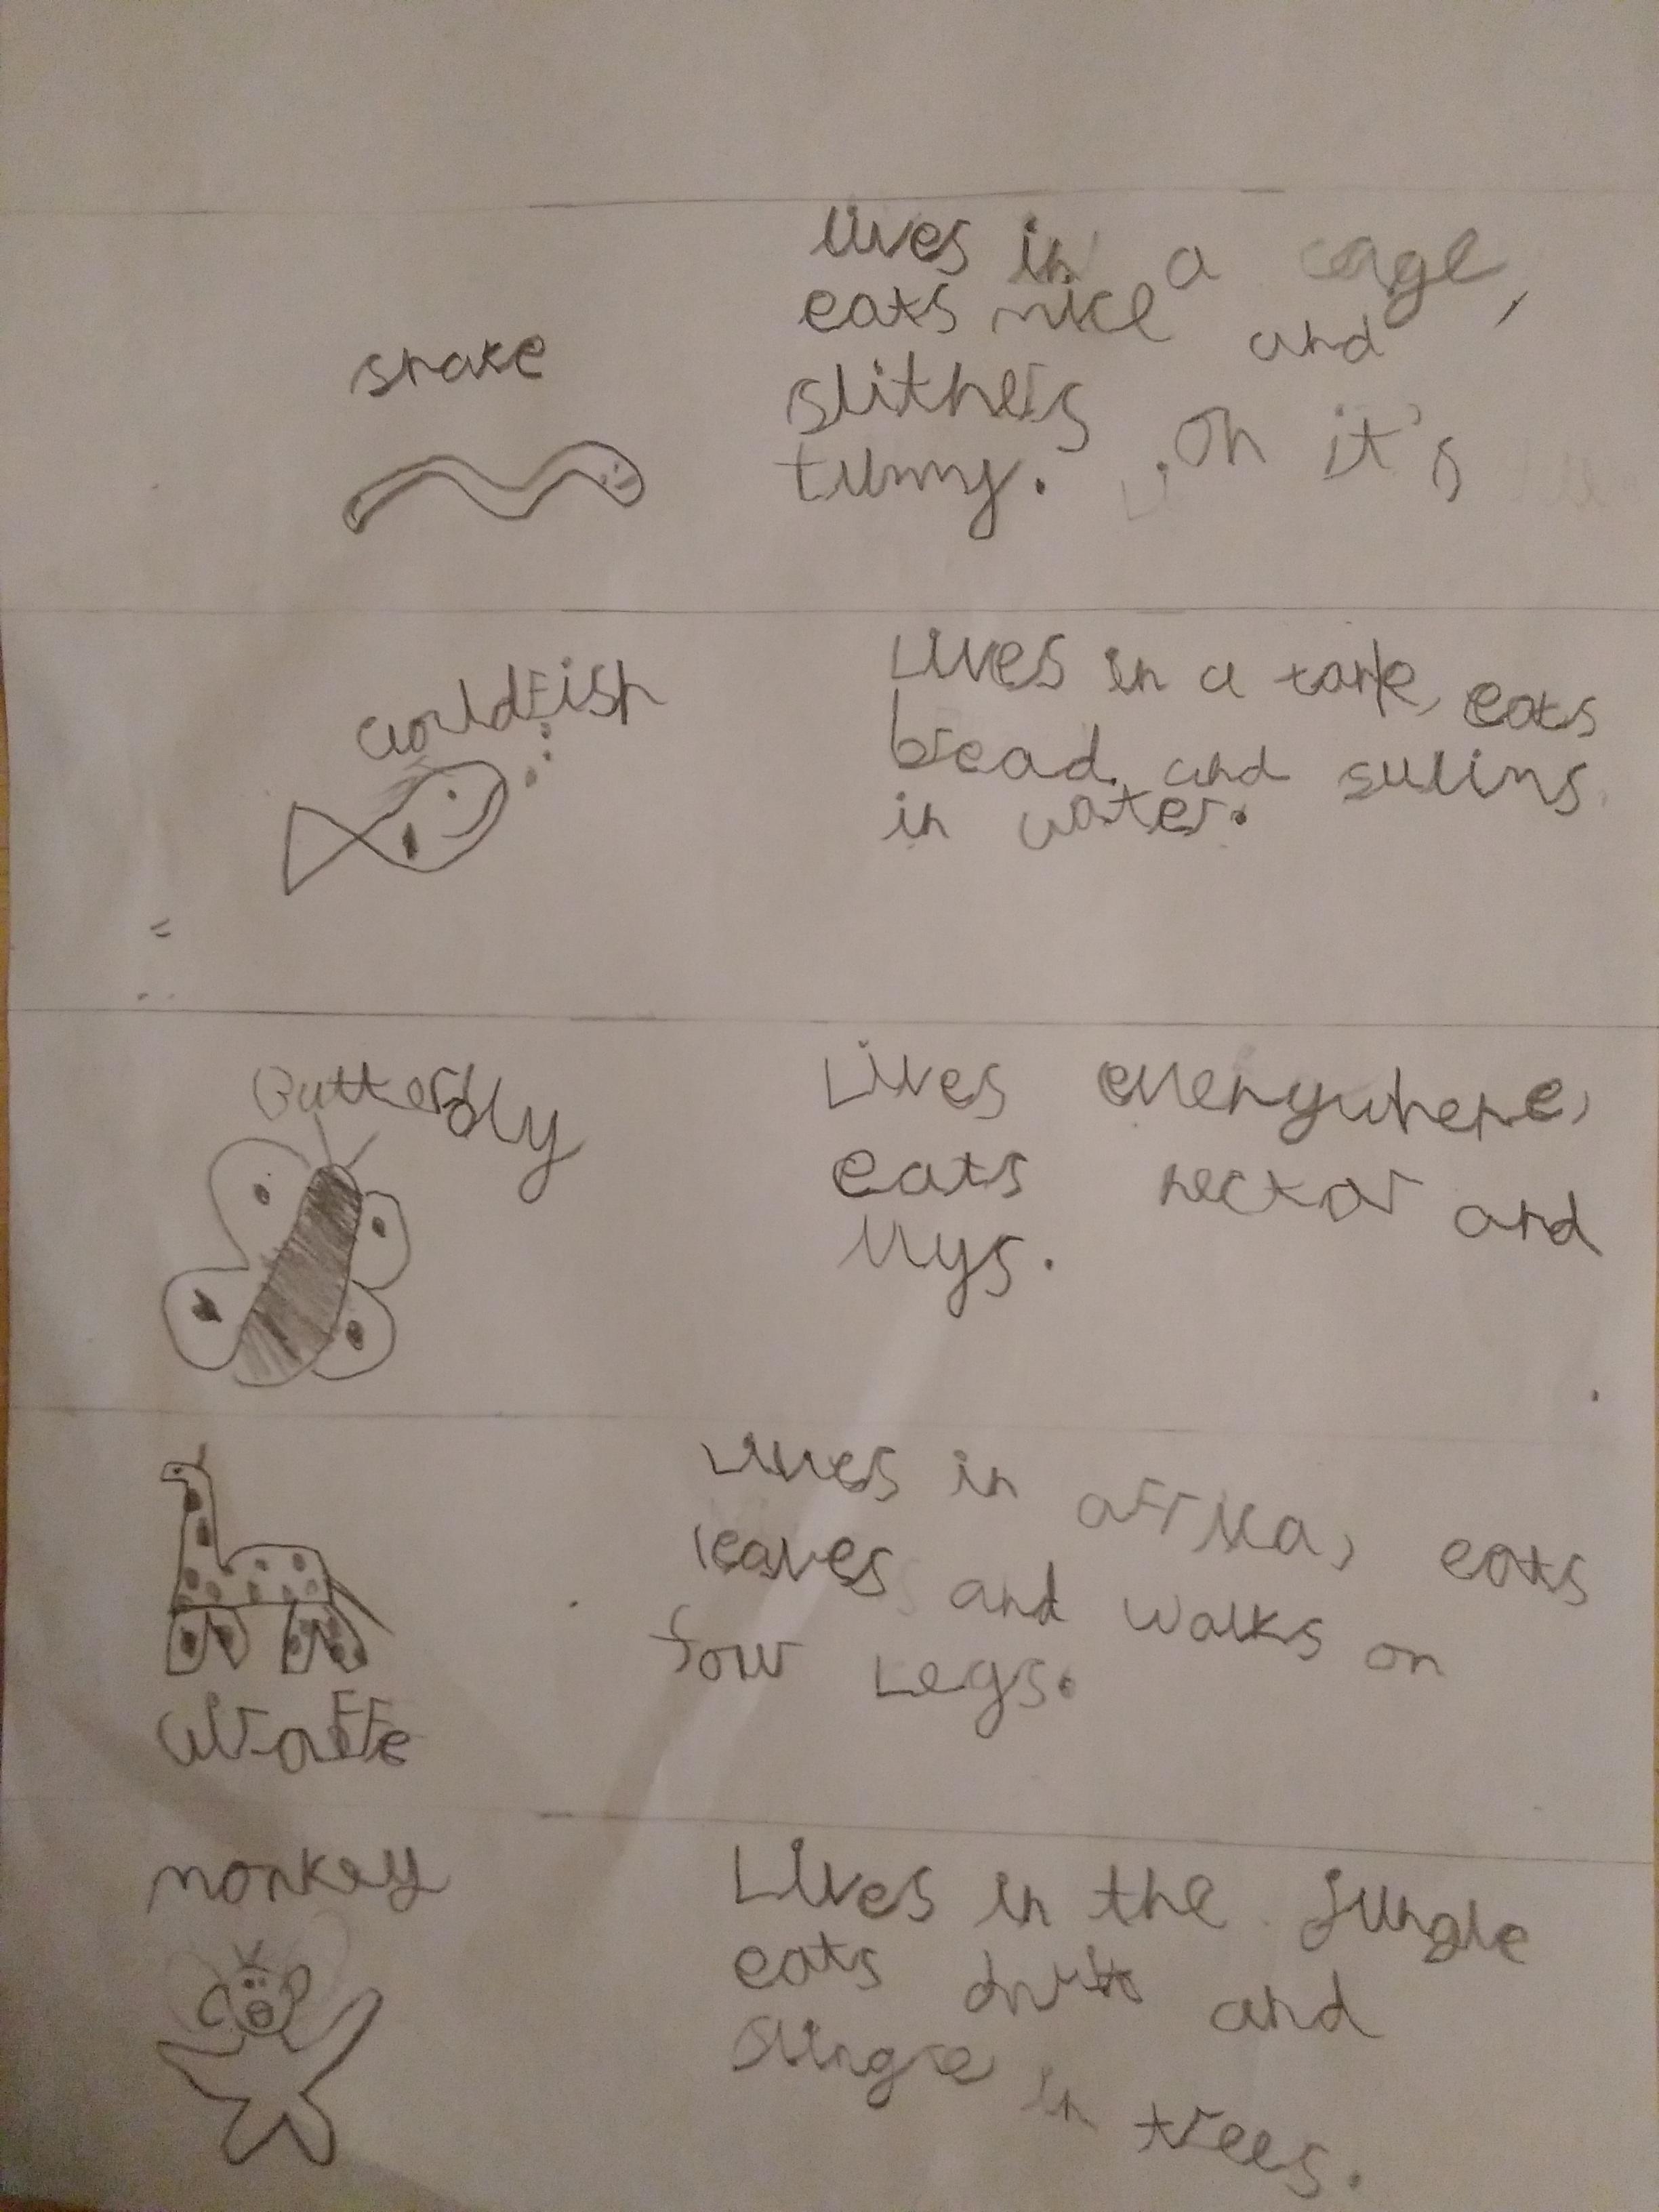 snake
lives in a cage,
eats mice and
slithers on it's
tummy.
Gouldfish
Lives in a tank, eats
bread and swims
in water.
Butterfly
Lives everywhere,
eats nectar and
Giraffe
Lives in africa, eats
leaves and walks on
four Legs.
monkey
Lives in the jungle
eats and
in trees.